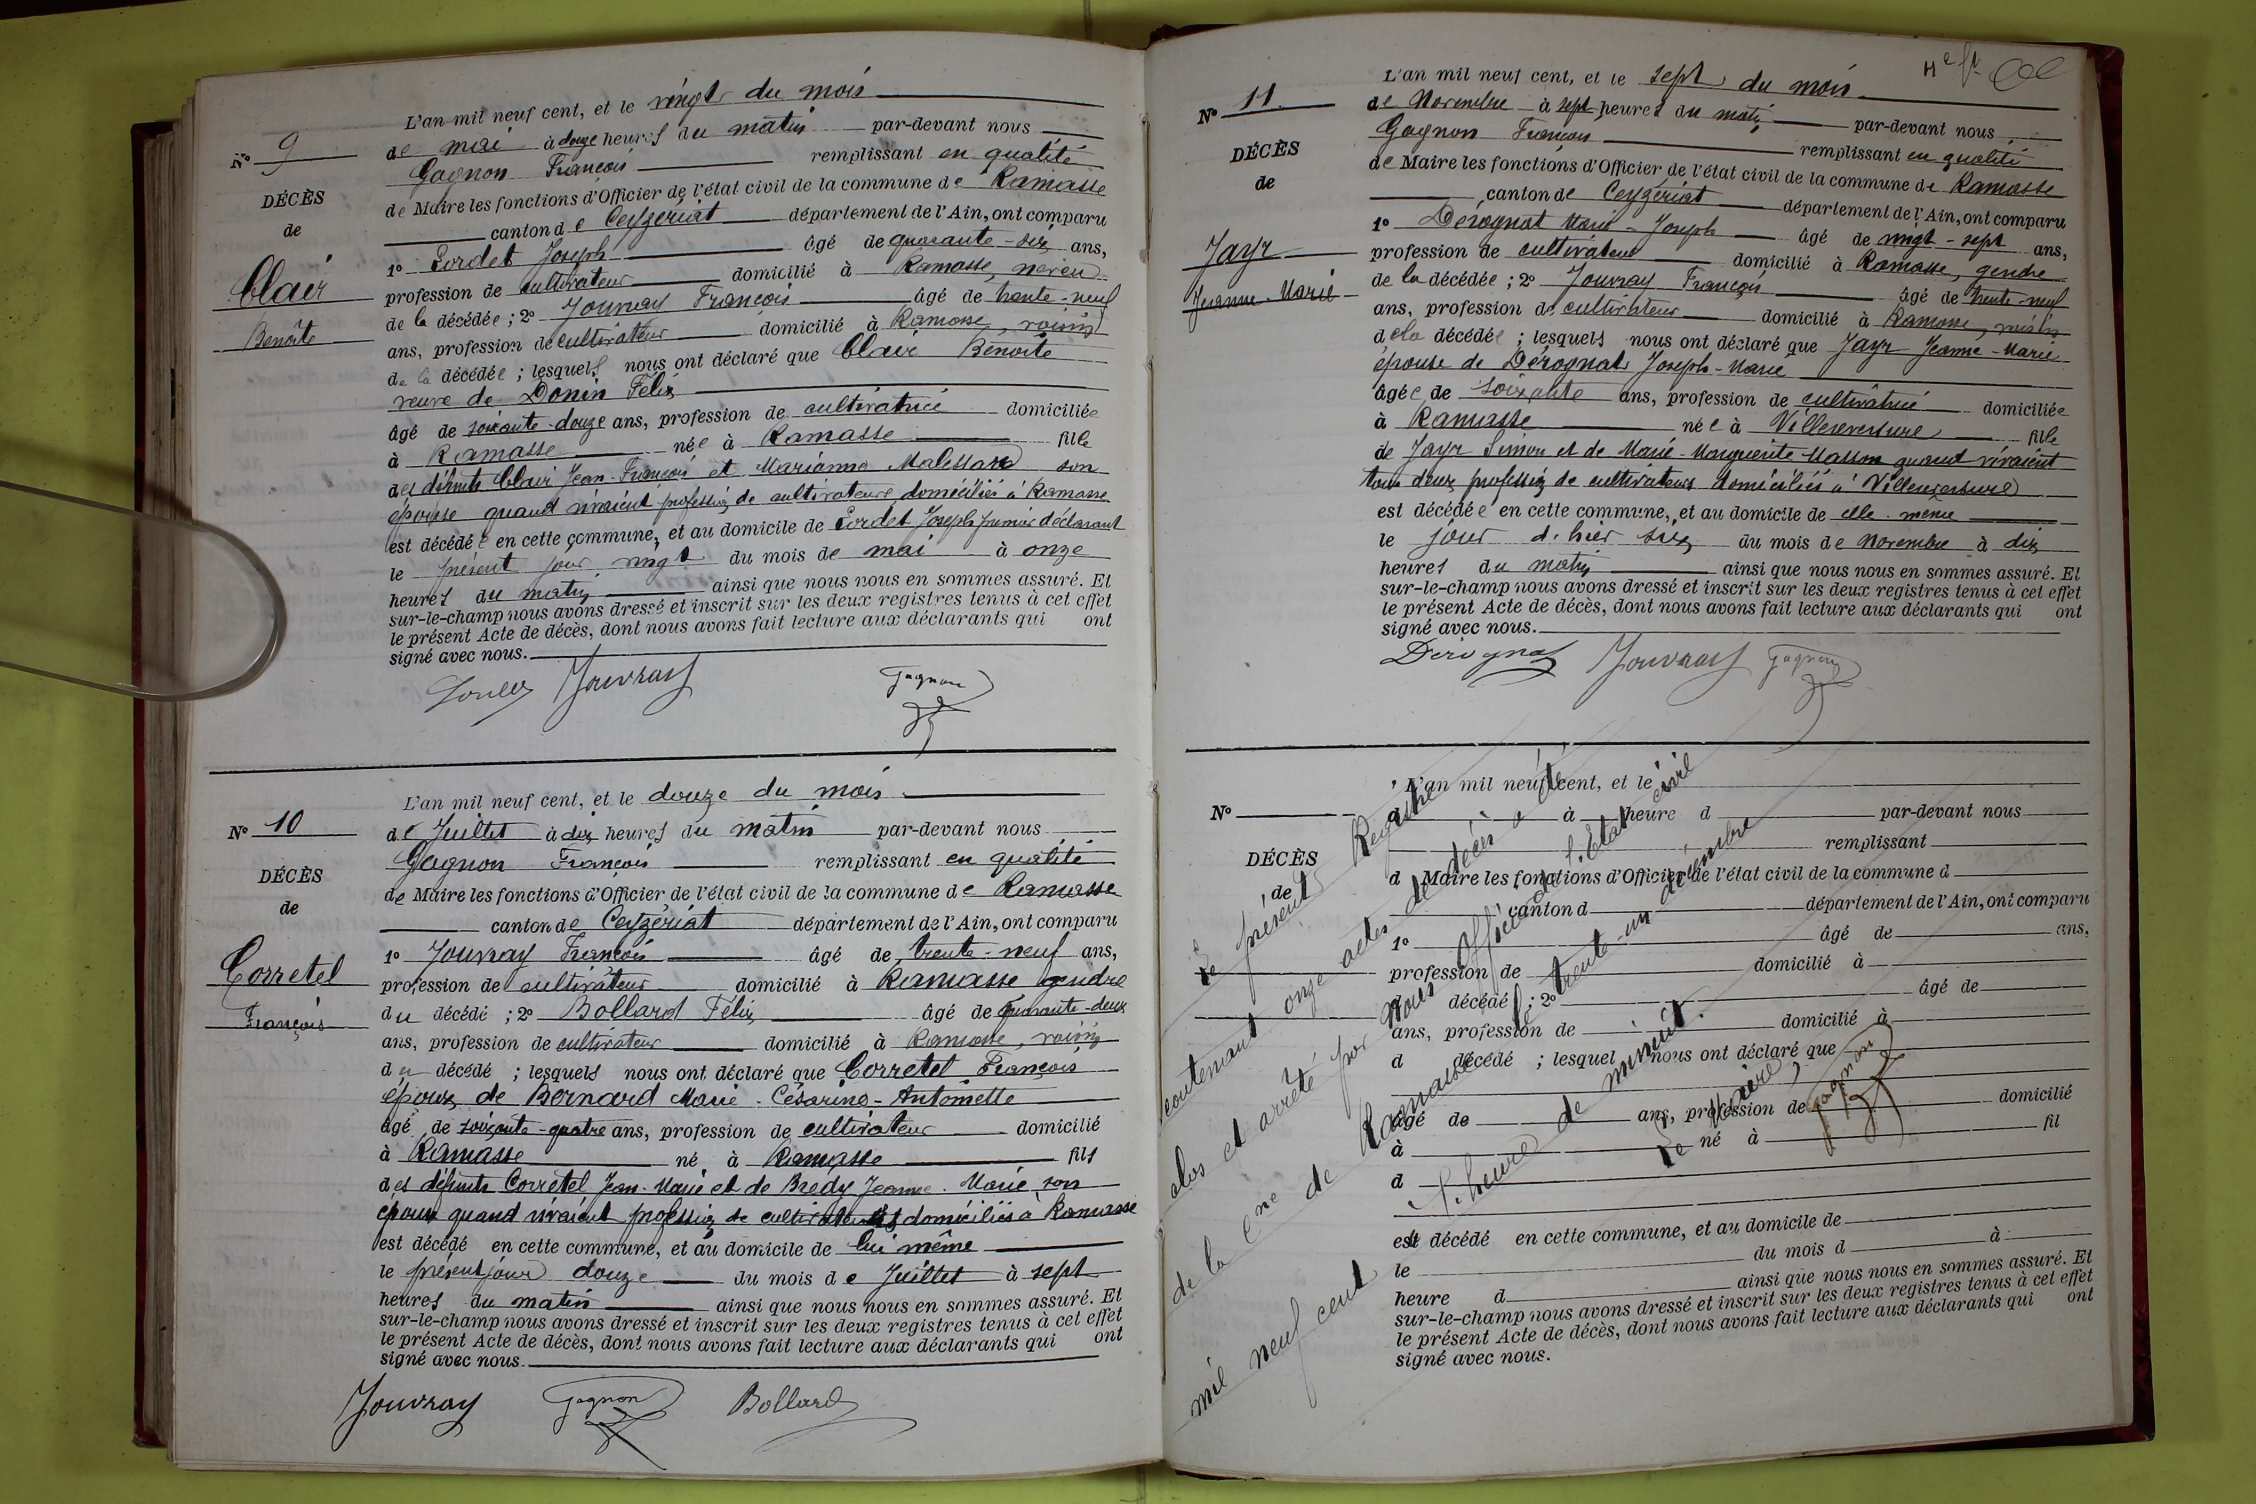 L'an mil neuf cent, et le vingt du mois
N° 9
de mai à douze heures du matin par-devant nous
Gagnon François remplissant en qualité
DÉCÈS
de Maire les fonctions d'Officier de l'état civil de la commune de Ramasse
de
canton de Ceyzériat département de l'Ain, ont comparu
1° Sordet Joseph âgé de quarante-six ans,
Clair
profession de cultivateur domicilié à Ramasse, neveu
de la décédée ; 2° Jouvray François âgé de trente-neuf
Benoîte
ans, profession de cultivateur domicilié à Ramasse, voisin
de la décédée ; lesquels nous ont déclaré que Clair Benoîte
veuve de Donin Félix
âgé de soixante-douze ans, profession de cultivatrice domiciliée
à Ramasse née à Ramasse fille
des défunts Clair Jean-François et Marianne son
épouse quand vivaient profession de cultivateurs domiciliés à Ramasse
est décédée en cette commune, et au domicile de Sordet Joseph premier déclarant
le présent jour vingt du mois de mai à onze
heures du matin ainsi que nous nous en sommes assuré. Et
sur-le-champ nous avons dressé et inscrit sur les deux registres tenus à cet effet
le présent Acte de décès, dont nous avons fait lecture aux déclarants qui ont
signé avec nous.
Jouvray Gagnon
L'an mil neuf cent, et le douze du mois
N° 10
de Juillet à dix heures du matin par-devant nous
Gagnon François remplissant en qualité
DÉCÈS
de Maire les fonctions d'Officier de l'état civil de la commune de Ramasse
de
canton de Ceyzériat département de l'Ain, ont comparu
1° Jouvray François âgé de trente-neuf ans,
Corretel
profession de cultivateur domicilié à Ramasse gendre
François
du décédé ; 2° Bollard Félix âgé de quarante-deux
ans, profession de cultivateur domicilié à Ramasse, voisin
du décédé ; lesquels nous ont déclaré que Corretel François
époux de Bernard Marie-Césarine-Antoinette
âgé de soixante-quatre ans, profession de cultivateur domicilié
à Ramasse né à Ramasse fils
des défunts Corretel Jean-Marie et de Bredy Jeanne-Marie, son
épouse quand vivaient profession de cultivateurs domiciliés à Ramasse
est décédé en cette commune, et au domicile de lui même
le présent jour douze du mois de Juillet à sept
heures du matin ainsi que nous nous en sommes assuré. Et
sur-le-champ nous avons dressé et inscrit sur les deux registres tenus à cet effet
le présent Acte de décès, dont nous avons fait lecture aux déclarants qui ont
signé avec nous.
Jouvray Gagnon Bollard
L'an mil neuf cent, et le sept du mois
N° 11
de Novembre à sept heures du matin par-devant nous
Gagnon François remplissant en qualité
DÉCÈS
de Maire les fonctions d'Officier de l'état civil de la commune de Ramasse
de
canton de Ceyzériat département de l'Ain, ont comparu
1° Dérognat Marie-Joseph âgé de vingt-sept ans,
Jayr
profession de cultivateur domicilié à Ramasse, gendre
Jeanne-Marie
de la décédée ; 2° Jouvray François âgé de trente-neuf
ans, profession de cultivateur domicilié à Ramasse, voisin
de la décédée ; lesquels nous ont déclaré que Jayr Jeanne-Marie
épouse de Dérognat Joseph-Marie
âgée de soixante ans, profession de cultivatrice domiciliée
à Ramasse née à Villereversure fille
de Jayr Simon et de Marie-Marguerite Masson quand vivaient
tous deux profession de cultivateurs domiciliés à Villereversure
est décédée en cette commune, et au domicile de elle-même
le jour d'hier six du mois de novembre à dix
heures du matin ainsi que nous nous en sommes assuré. Et
sur-le-champ nous avons dressé et inscrit sur les deux registres tenus à cet effet
le présent Acte de décès, dont nous avons fait lecture aux déclarants qui ont
signé avec nous.
Dérognat Jouvray Gagnon
L'an mil neuf cent, et le
N°
d à heure d par-devant nous
remplissant
DÉCÈS
d Maire les fonctions d'Officier de l'état civil de la commune d
de
canton d département de l'Ain, ont comparu
1° âgé de ans,
profession de domicilié à
d décédé ; 2° âgé de
ans, profession de domicilié à
d décédé ; lesquel nous ont déclaré que
âgé de ans, profession de domicilié
à né à fil
d
est décédé en cette commune, et au domicile de
le du mois d à
heure d ainsi que nous nous en sommes assuré. Et
sur-le-champ nous avons dressé et inscrit sur les deux registres tenus à cet effet
le présent Acte de décès, dont nous avons fait lecture aux déclarants qui ont
signé avec nous.
Le présent Registre
contenant onze actes de décès a été
clos et arrêté par nous officier de l'Etat civil
de la Cne de Ramasse le trente-un décembre
mil neuf cent à l'heure de minuit.
Le Maire,
Gagnon